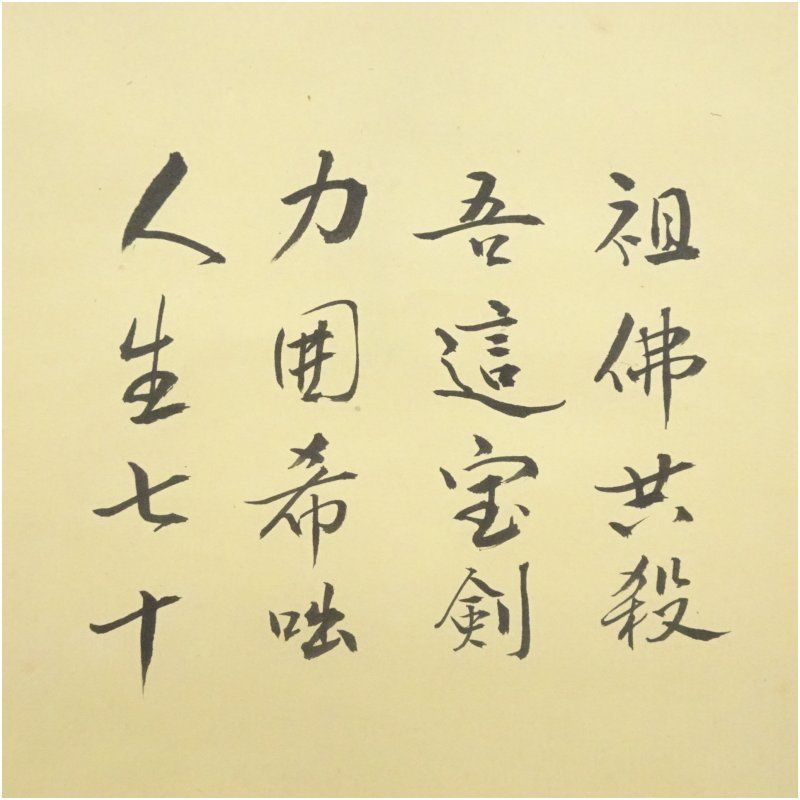 人生七十
力囲希咄
吾這宝剣
祖佛共殺